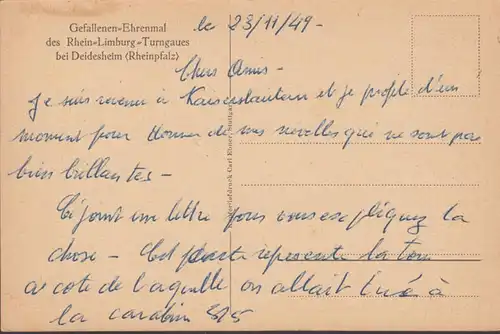 Gefallenen-Ehrenmal
des Rhein-Limburg-Turngaues
bei Deidesheim (Rheinpfalz)
le 23/11/49-
Chers Amis-
Je suis revenu à Kaiserslautern et je profite d'un
moment pour donner de mes novelles qui ne sont pas
bien brillantes-
Ci joint un lettre pour vous expliquez la
chose- represente la tour
a cote de laquelle on allait à
la carabin